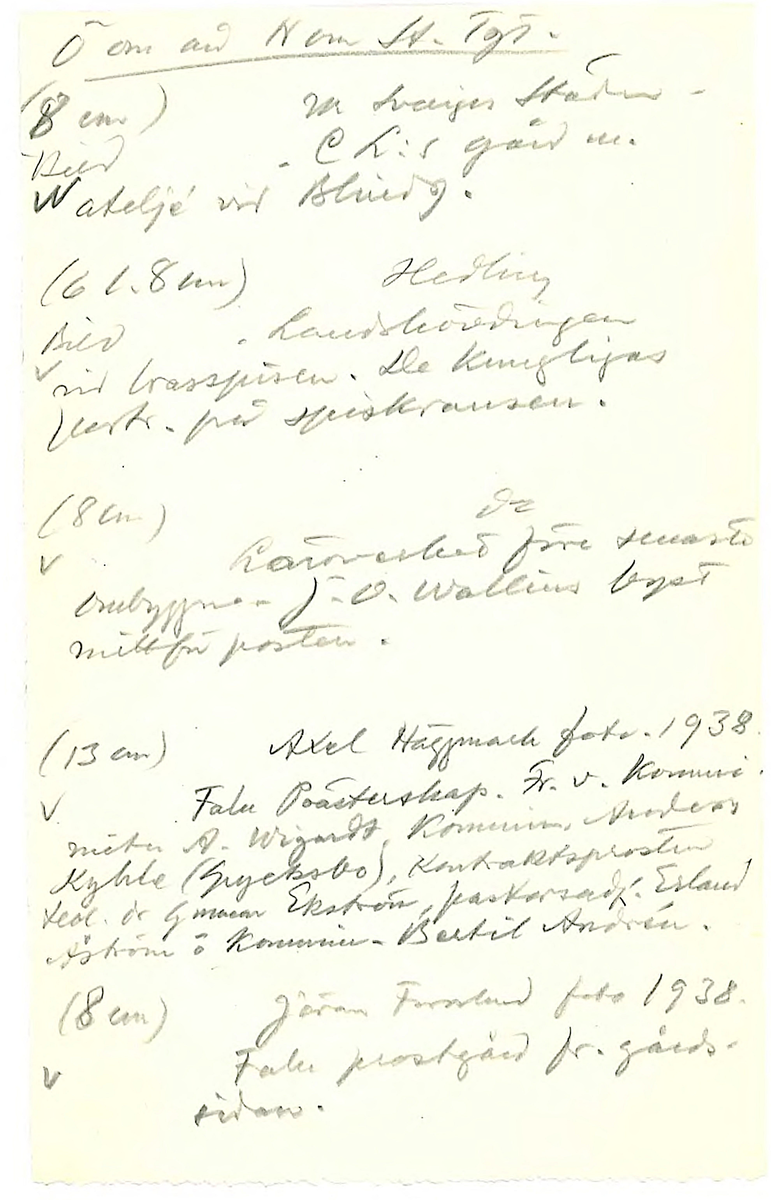 Ö om and H om St. Tgt.
(8 cm) m Sveriges Städer -
Bild . C L:s gård m.
V ateljé vid
(6 1.8 cm) Hedling
Bild . Landshövdingen
V vid brasspisen. De kungligas
portr. på spiskransen.
(8 cm) do
V Läroverket före senaste
ombyggn. J. O. Wallins byst
mittför posten.
(13 cm) Axel Häggmark foto. 1938.
V Falu Prästerskap. Fr. v. Kommi-
nister A. Wigardt, Kommin. Anders
Kyhle (Grycksbo), Kontraktsprosten
teol. dr Gunnar Ekström, pastorsadj. Erland
Åström o Kommin. Bertil Andrén.
(8 cm) Jöran Forslund foto 1938.
V Falu prostgård fr. gårds-
sidan.